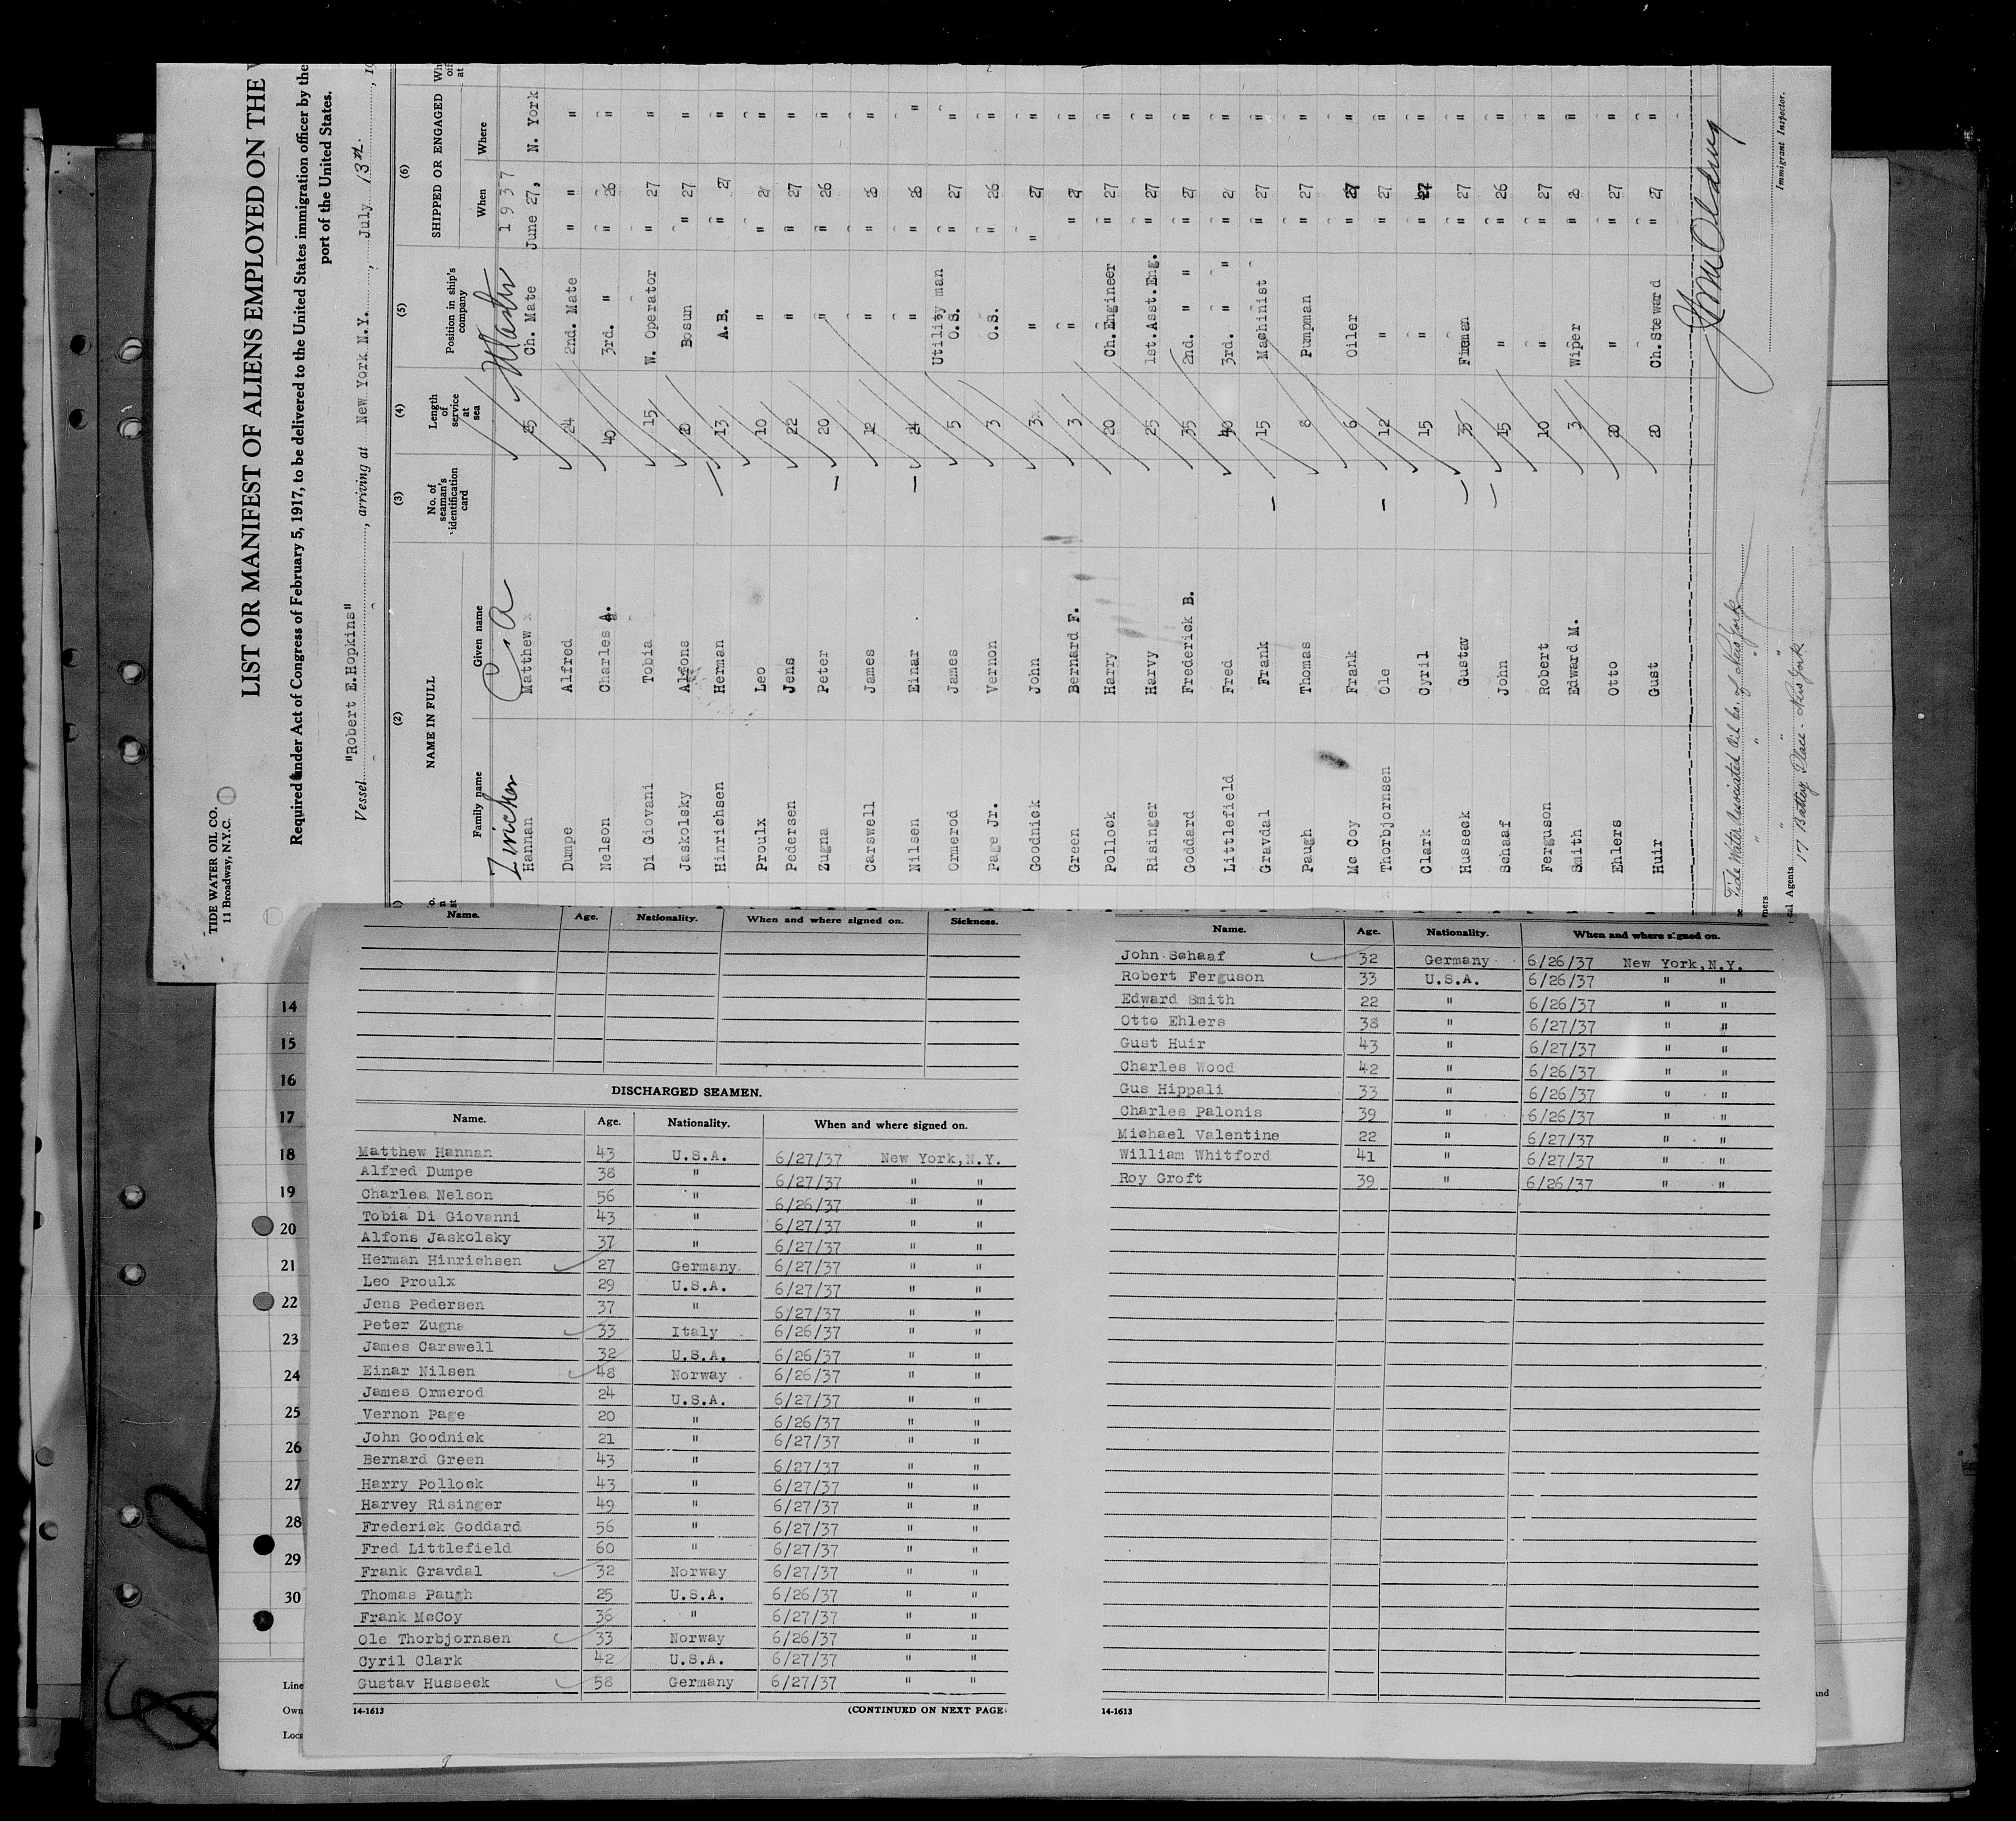 TIDE WATER OIL CO.
11 Broadway, N.Y.C.
LIST OR MANIFEST OF ALIENS EMPLOYED ON THE
Required under Act of Congress of February 5, 1917, to be delivered to the United States immigration officer by the
port of the United States.
Vessel "Robert E.Hopkins", arriving at New York N.Y., July 13th, 19
(2) (3) (4) (5) (6)
NAME IN FULL No. of seaman's identification card Length of service at sea Position in ship's company SHIPPED OR ENGAGED
Family name Given name When Where
Master 1937
Hannan Matthew 25 Ch. Mate June 27, N. York
Dumpe Alfred 24 2nd. Mate " " "
Nelson Charles A. 40 3rd. " " 26 "
Di Giovani Tobia 15 W. Operator " 27 "
Jaskolsky Alfons 20 Bosun " 27 "
Hinrichsen Herman 13 A.B. " 27 "
Proulx Leo 10 " " 27 "
Pedersen Jens 22 " " 27 "
Zugna Peter 20 " " 26 "
Carswell James 12 " " 26 "
Nilsen Einar 24 " " 26 "
Ormerod James 5 Utility man O.S. " 27 "
Page Jr. Vernon 3 O.S. " 26 "
Goodnick John 3 " " 27 "
Green Bernard F. 3 " " 27 "
Pollock Harry 20 Ch. Engineer " 27 "
Risinger Harvy 25 1st. Asst. Eng. " 27 "
Goddard Frederick B. 35 2nd. " " " 27 "
Littlefield Fred 40 3rd. " " " 27 "
Gravdal Frank 15 Machinist " 27 "
Paugh Thomas 8 Pumpman " 27 "
Mc Coy Frank 6 Oiler " 27 "
Thorbjornsen Ole 12 " " 27 "
Clark Cyril 15 " " 27 "
Husseck Gustav 35 Fireman " 27 "
Schaaf John 15 " " 26 "
Ferguson Robert 10 " " 27 "
Smith Edward M. 3 Wiper " 26 "
Ehlers Otto 20 " " 27 "
Huir Gust 20 Ch. Steward " 27 "
Tide Water Associated Oil Co. of New York
" " " "
17 Battery Place - New York
Immigrant Inspector.
Name. Age. Nationality. When and where signed on. Sickness.
DISCHARGED SEAMEN.
Name. Age. Nationality. When and where signed on.
Matthew Hannan 43 U.S.A. 6/27/37 New York,N.Y.
Alfred Dumpe 38 " 6/27/37 " "
Charles Nelson 56 " 6/26/37 " "
Tobia Di Giovanni 43 " 6/27/37 " "
Alfons Jaskolsky 37 " 6/27/37 " "
Herman Hinrichsen 27 Germany. 6/27/37 " "
Leo Proulx 29 U.S.A. 6/27/37 " "
Jens Pedersen 37 " 6/27/37 " "
Peter Zugna 33 Italy 6/26/37 " "
James Carswell 32 U.S.A. 6/26/37 " "
Einar Nilsen 48 Norway 6/26/37 " "
James Ormerod 24 U.S.A. 6/27/37 " "
Vernon Page 20 " 6/26/37 " "
John Goodnick 21 " 6/27/37 " "
Bernard Green 43 " 6/27/37 " "
Harry Pollock 43 " 6/27/37 " "
Harvey Risinger 49 " 6/27/37 " "
Frederick Goddard 56 " 6/27/37 " "
Fred Littlefield 60 " 6/27/37 " "
Frank Gravdal 32 Norway 6/27/37 " "
Thomas Paugh 25 U.S.A. 6/26/37 " "
Frank McCoy 36 " 6/27/37 " "
Ole Thorbjornsen 33 Norway 6/26/37 " "
Cyril Clark 42 U.S.A. 6/27/37 " "
Gustav Husseck 58 Germany 6/27/37 " "
14-1613 (CONTINUED ON NEXT PAGE)
Name. Age. Nationality. When and where signed on.
John Schaaf 32 Germany 6/26/37 New York,N.Y.
Robert Ferguson 33 U.S.A. 6/26/37 " "
Edward Smith 22 " 6/26/37 " "
Otto Ehlers 38 " 6/27/37 " "
Gust Huir 43 " 6/27/37 " "
Charles Wood 42 " 6/26/37 " "
Gus Hippali 33 " 6/26/37 " "
Charles Palonis 39 " 6/26/37 " "
Michael Valentine 22 " 6/27/37 " "
William Whitford 41 " 6/27/37 " "
Roy Groft 39 " 6/26/37 " "
14-1613
14
15
16
17
18
19
20
21
22
23
24
25
26
27
28
29
30